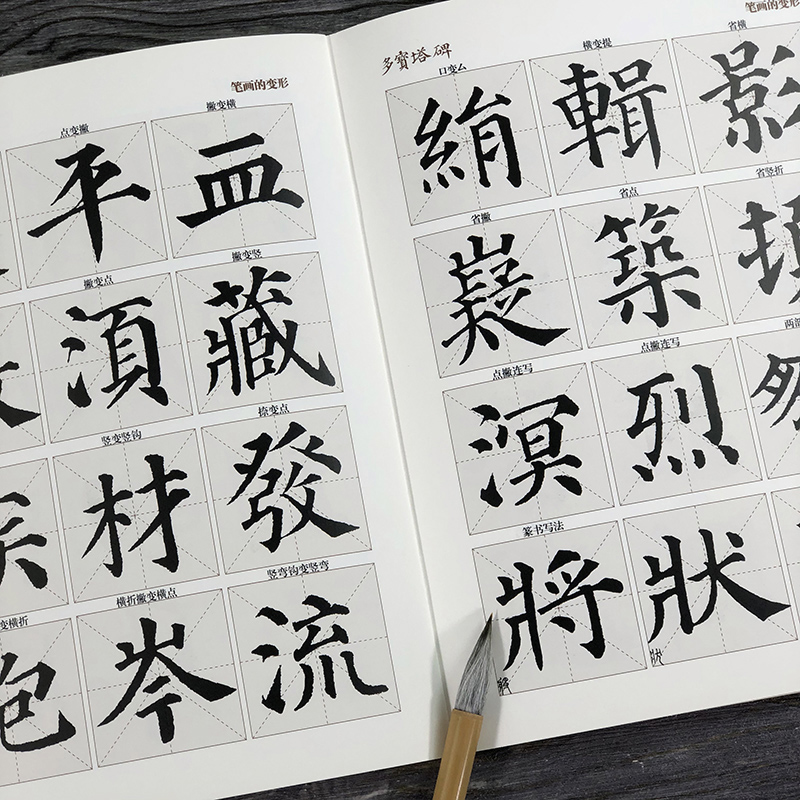 笔画的变形
点变撇 撇变横
平 血
撇变点 撇变竖
湏 藏
竖变竖钩 捺变点
材 發
变横折 横折撇变横点 竖弯钩变竖弯
岑 流
多寶塔碑 笔画的变形
口变厶 横变提 省横
絹 輯 影
省撇 省点 省竖折
嶷 築
点撇连写 点撇连写
溟 烈
篆书写法
將 狀